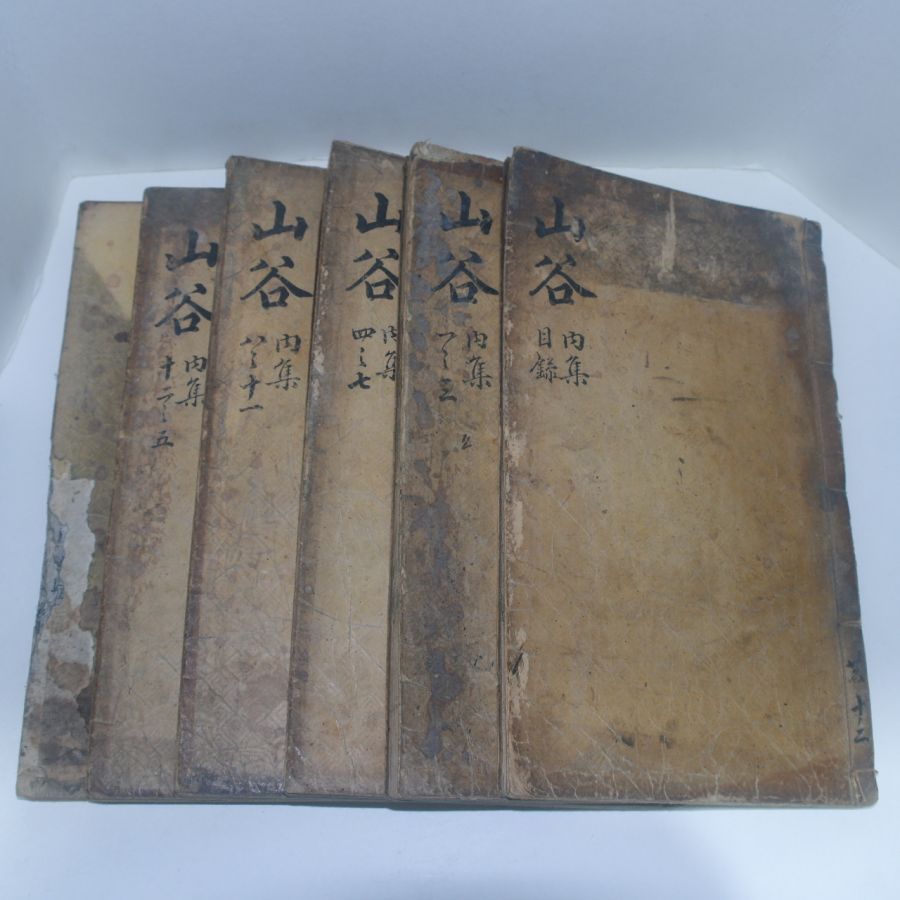 山谷
内集
目録
山谷
内集
一之三
山谷
内集
四之七
山谷
内集
八之十一
山谷
内集
十二之五
十二